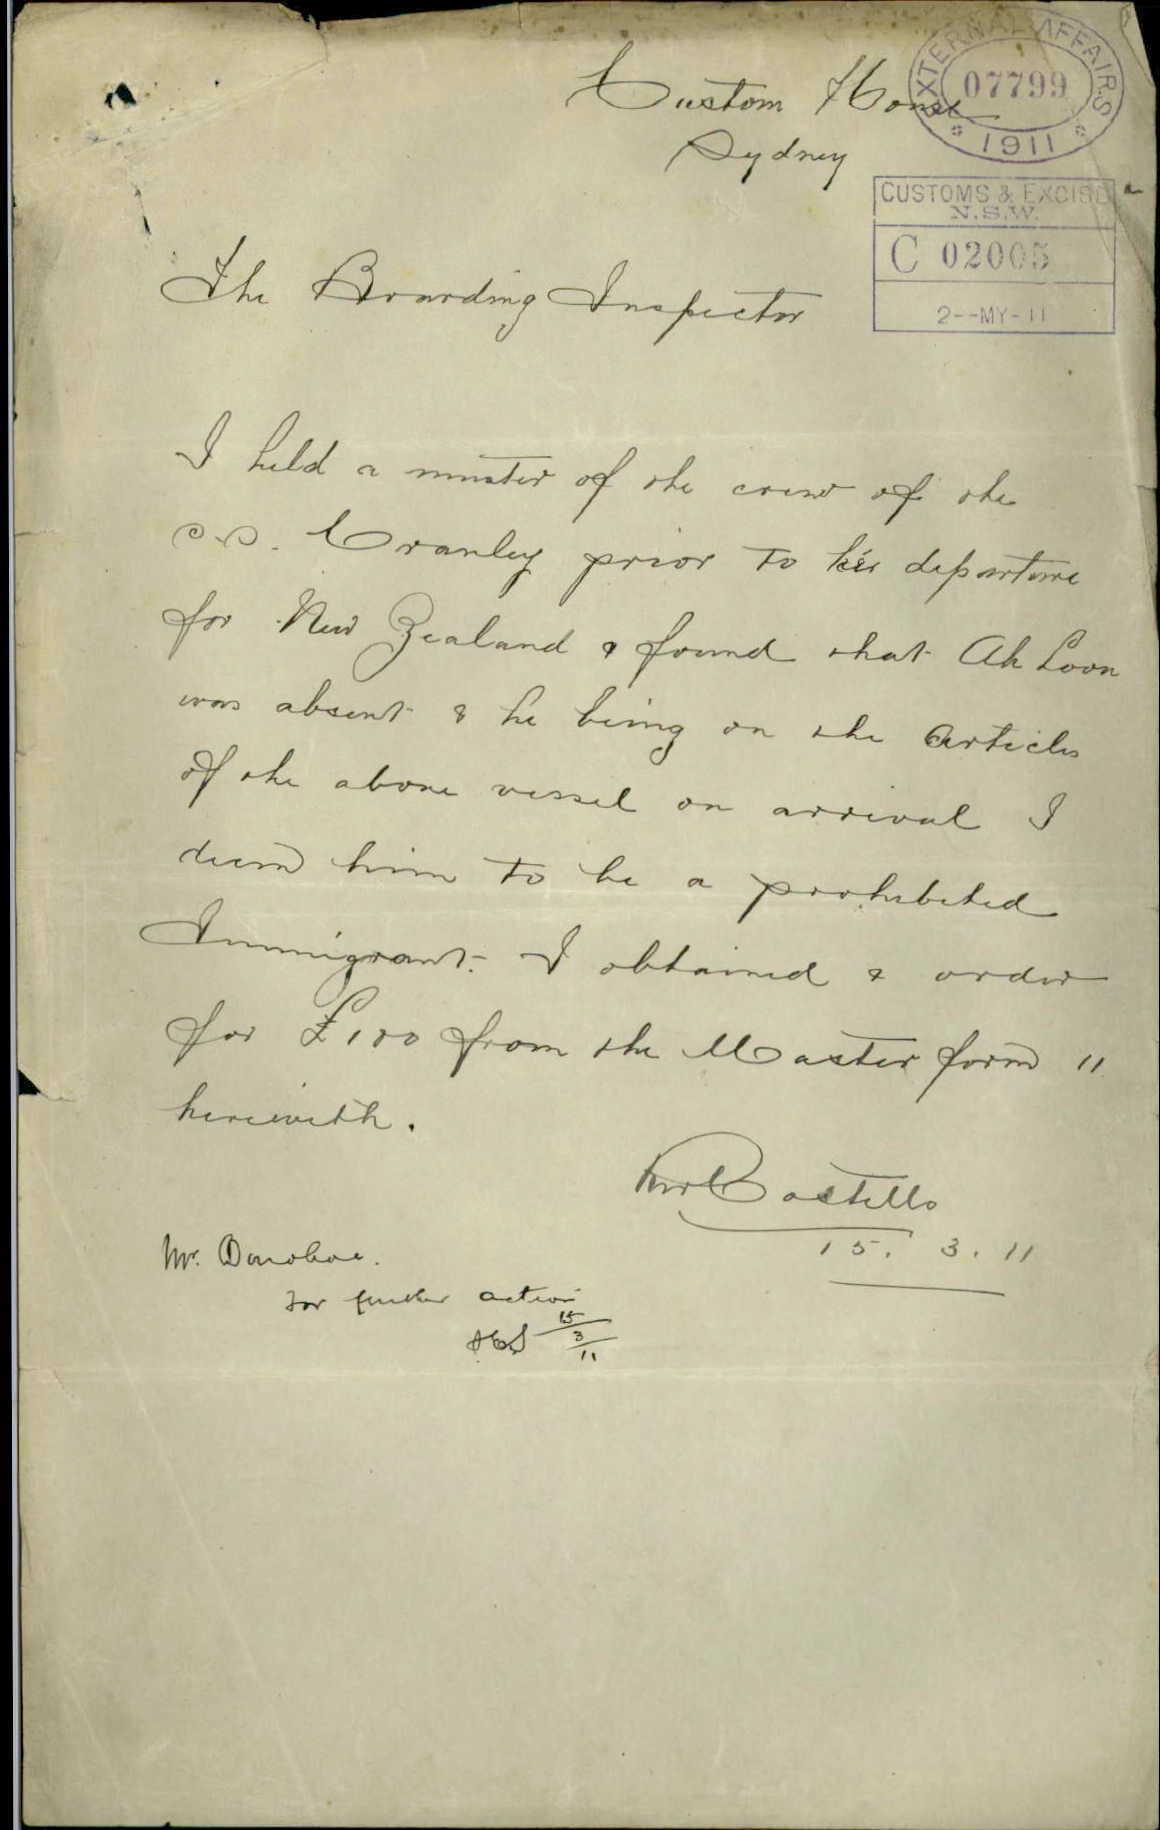 EXTERNAL AFFAIRS
07799
1911
Custom House
Sydney
CUSTOMS & EXCISE
N.S.W.
C 02005
2--MY-11
The Boarding Inspector
I held a muster of the crew of the
s.s. Cranley prior to her departure
for New Zealand & found that Ah Loon
was absent & he being on the Articles
of the above vessel on arrival I
deem him to be a prohibited
Immigrant. I obtained & order
for £100 from the Master form "
herewith.
Costello
15. 3. 11
Mr. Donohoe.
For further action
15/3/11